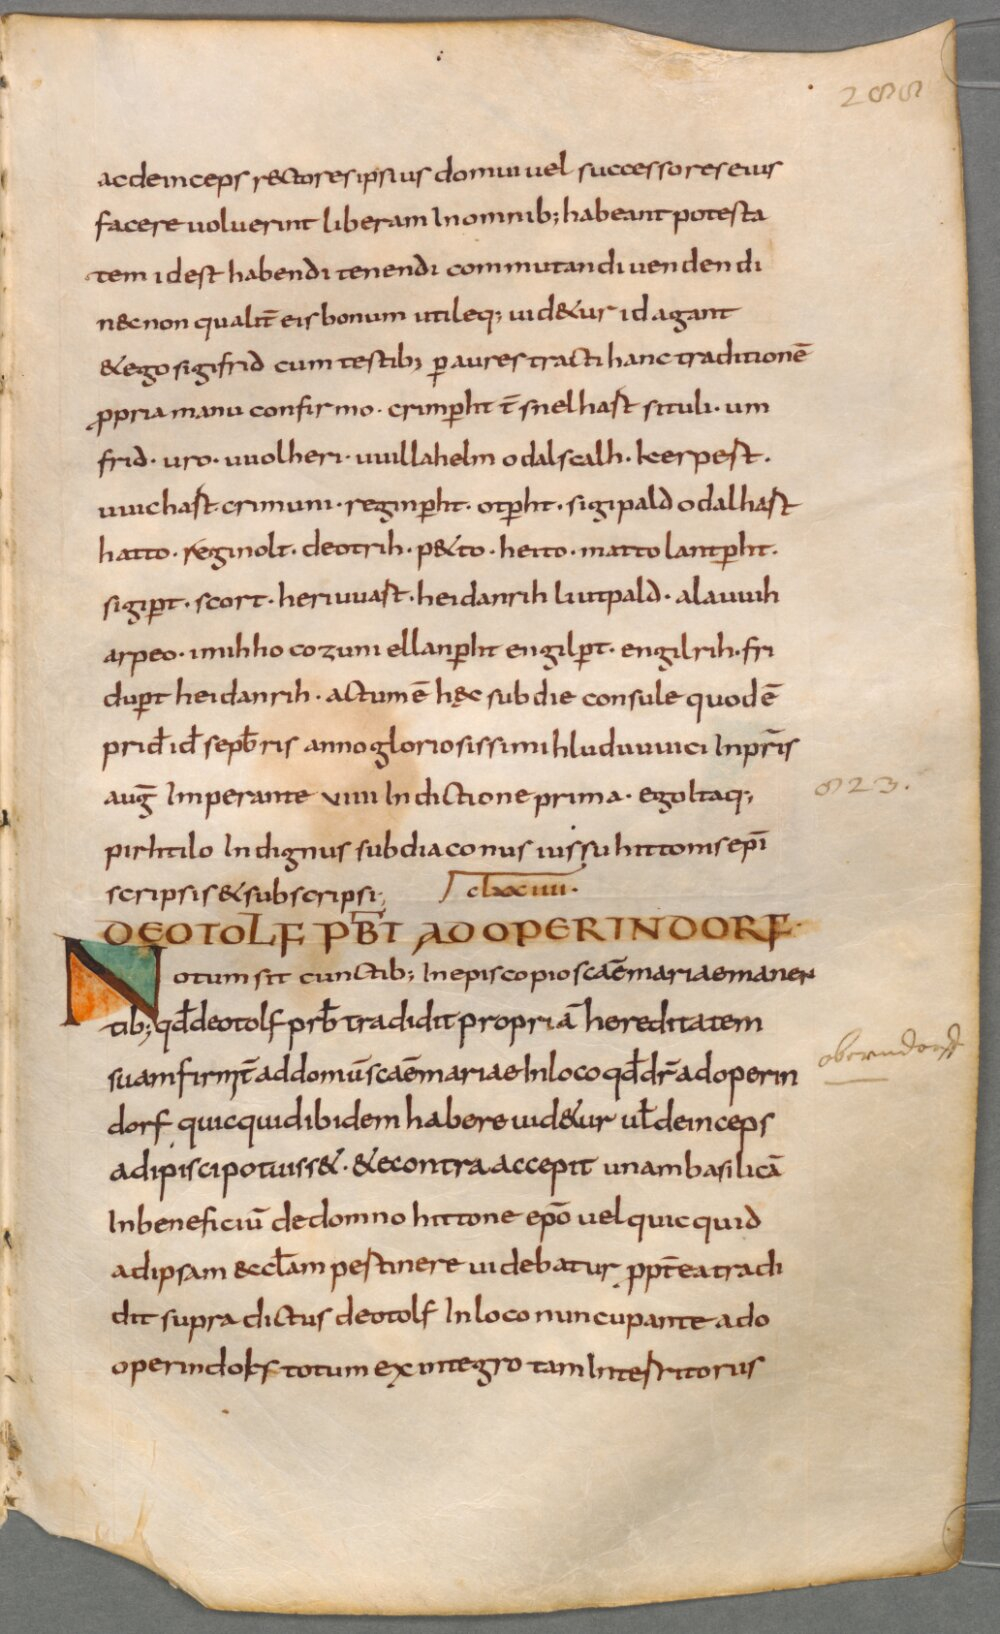 288
ac deinceps rectores ipsius domui uel successores eius
facere uoluerint liberam In omnib; habeant potesta
tem idest habendi tenendi commutandi uendendi
n&cnon qualit̄ eis bonum utileq; uid&ur id agant
&ego sigifrid cum testib; ꝑ aures tracti hanc traditionē
ꝓpria manu confirmo· crimꝑht t̄ snelhast situli· um
frid· uro· uuolheri· uuillahelm odalscalh· kerpest·
uuichast crimuni· reginꝑht· otꝑht· sigipald odalhast
hatto· reginolt· deotrih· p&to· heito· matto lantꝑht·
sigiꝑt· scort· heriuuast· heidanrih liutpald· alauuih
arpeo· imihho cozuni ellanꝑht engilꝑt· engilrih· fri
duꝑt heidanrih· actum ē hęc sub die consule quod ē
prid̄ id̄ sepb̄ris anno gloriosissimi hluduuuici Inpr̄is
auḡ Imperante VIIII Indictione prima· ego ltaq;
823.
pirhtilo Indignus subdiaconus iussu hittonis ep̄i
scripsi & subscripsi;
clxxiiii·
DEOTOLF PB̄I AD OPERINDORF·
Notum sit cunctib; In episcopio scāē mariae manen
tib; qd̄ deotolf prb̄ tradidit propriā hereditatem
suam firmit̄ ad domū scāē mariae In loco qd̄ dr̄ ad operin
oberndorff
dorf quicquid ibidem habere uid&ur ul̄ deinceps
adipisci potuiss&· &econtra accepit unam basilicā
In beneficiū de domno hittone ep̄o uel quicquid
ad ipsam &ccl̄am pestinere uidebatur ꝓpt̄ea tradi
dit supra dictus deotolf In loco nuncupante ado
operindorf totum ex integro tam In testritorus